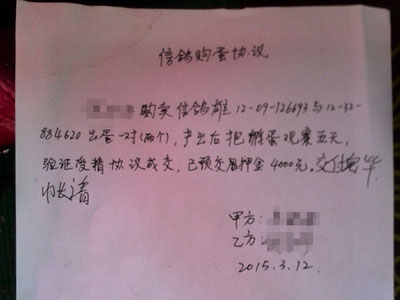 信鸽购蛋协议
购买信鸽雄12-09-126693与12-32-
884620出蛋一对(两个),产出后抱孵蛋观察五天,
验证受精协议成交,已预交押金4000元.交付
甲方:
乙方:
2015.3.12.